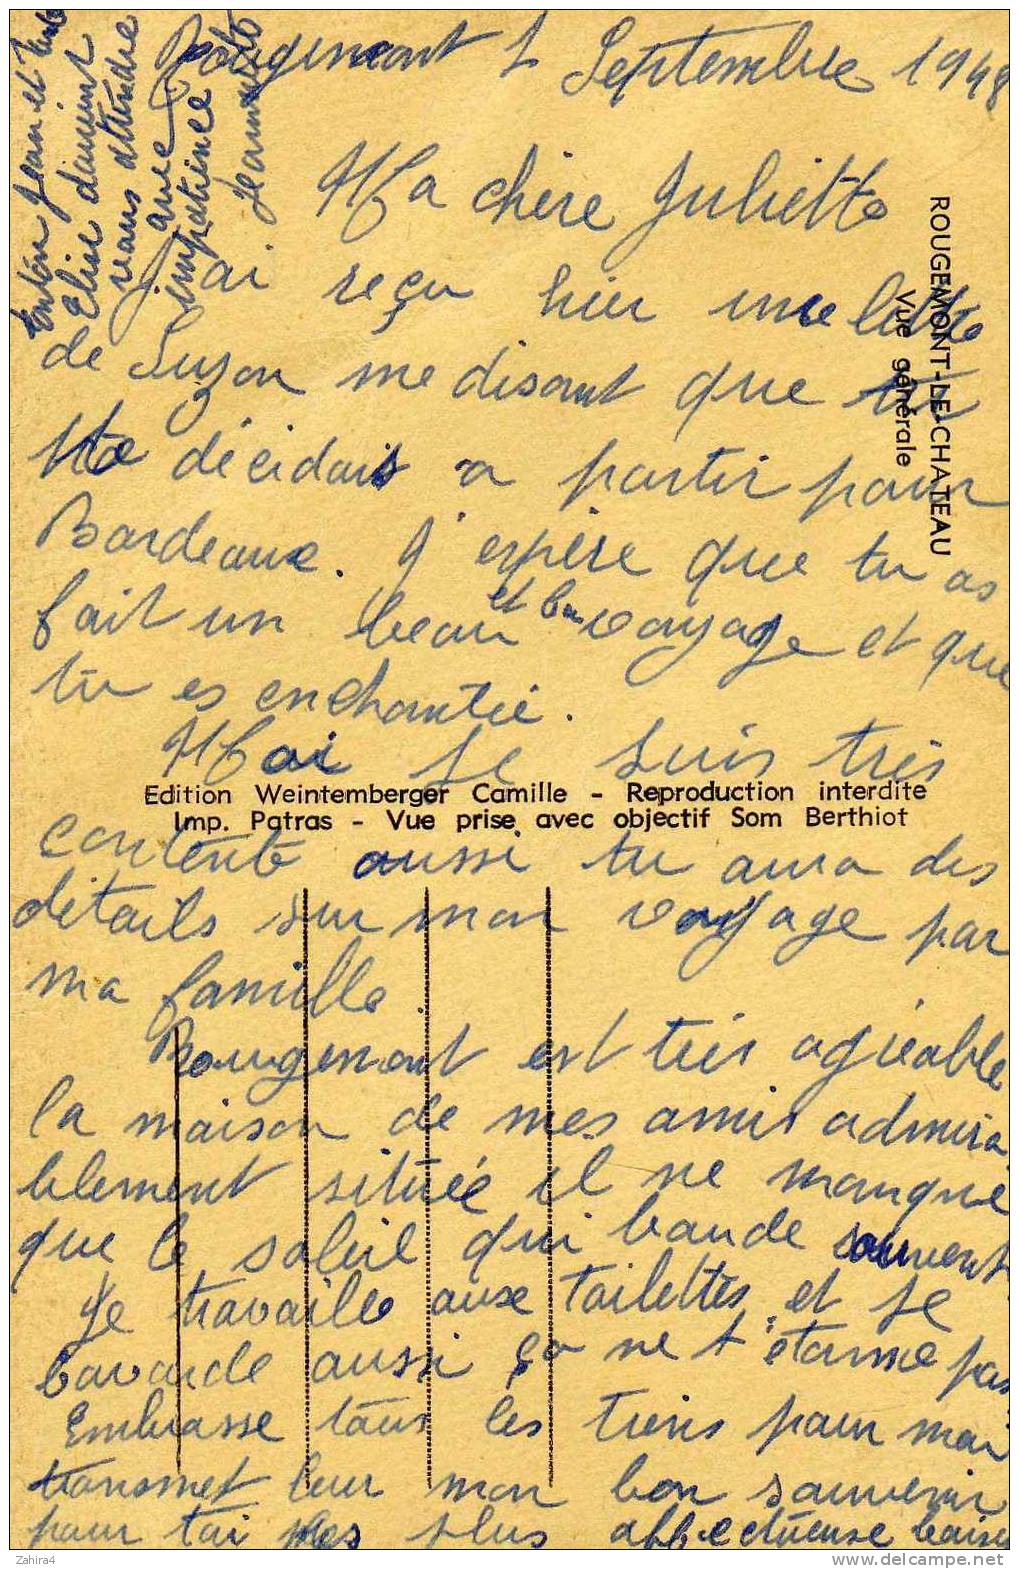 Rougemont 1 Septembre 1948
Ma chère Juliette
J'ai reçu hier une lettre
de Suzon me disant que tu
te décidais a partir pour
Bordeaux. J'espère que tu as
fait un beau et bon voyage et que
tu es enchantée.
Moi je suis très
contente aussi tu aura des
détails sur mon voyage par
ma famille
Rougemont est très agréable
la maison de mes amis admira
blement située il ne manque
que le soleil qui boude souvent
Je travaille aux toilettes et je
bavarde aussi ça ne t'étonne pas
Embrasse tous les tiens pour moi
transmet leur mon bon souvenir
pour toi les plus affectueuse baiser
Jean et
Elise doivent
vous attendre
avec
impatience
ROUGEMONT-LE-CHATEAU
Vue générale
Edition Weintemberger Camille - Reproduction interdite
Imp. Patras - Vue prise avec objectif Som Berthiot
Zahira4
www.delcampe.net